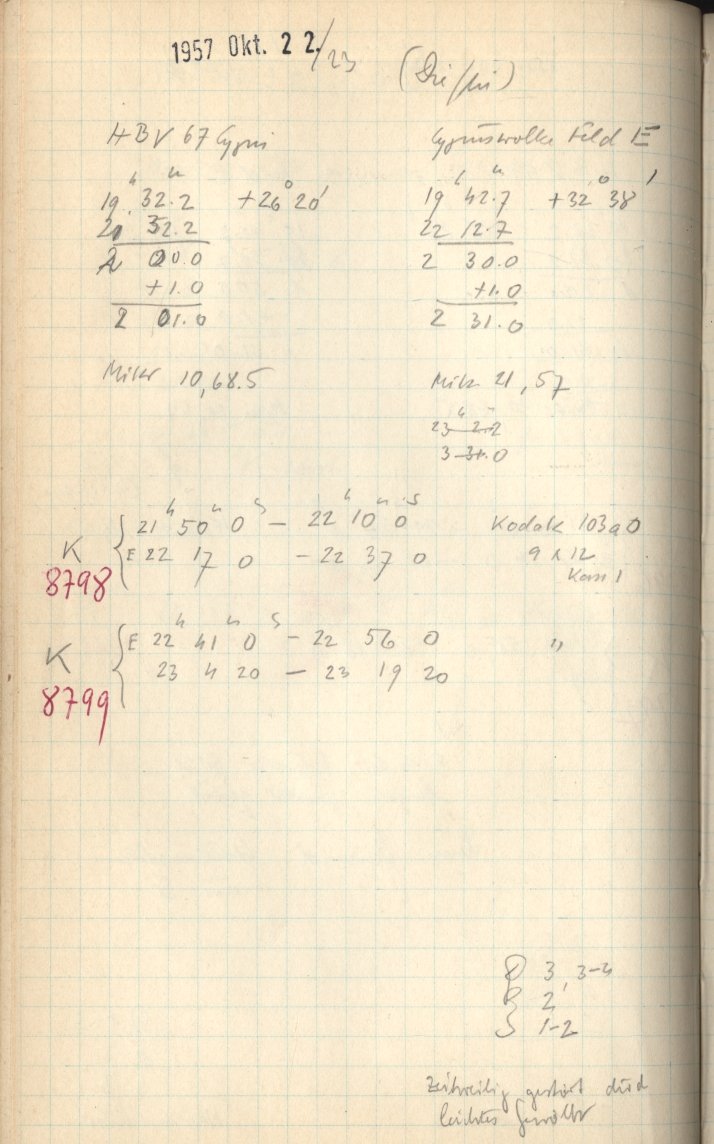 1957 Okt. 22./23
HBV 67 Cygni
19h 32.2m +26° 20'
21 32.2
2 00.0
+1.0
2 01.0
Mikr 10,68.5
Cygnuswolke Feld E
19h 42.7m +32° 38'
22 12.7
2 30.0
+1.0
2 31.0
Mikr 21,57
23h 2.2
3 31.0
K 8798
21h 50m 0s – 22h 10m 0s Kodak 103aO
E 22 17 0 – 22 37 0 9 x 12
Kass 1
K 8799
E 22h 41m 0s – 22 56 0 "
23 4 20 – 23 19 20
3,3-4
2
S 1-2
Zeitweilig gestört durch
leichtes Gewölk